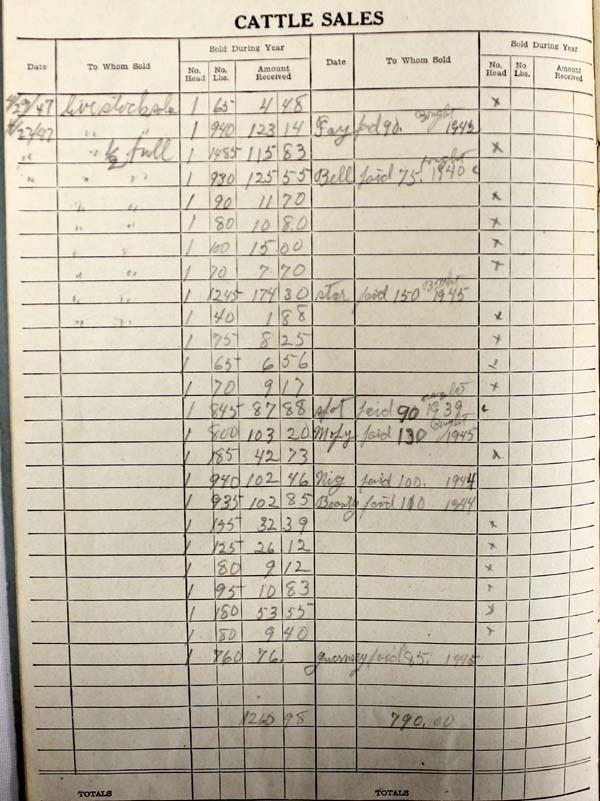 CATTLE SALES
Sold During Year Sold During Year
Date To Whom Sold No. Head No. Lbs. Amount Received Date To Whom Sold No. Head No. Lbs. Amount Received
4/29/47 livestock sale 1 65 4 48 x
4/29/47 " " 1 940 123 14 Fay paid 90. Bought 1945
" " 1/2 full 1 1485 115 83 x
" " " 1 930 125 55 Bell paid 75. Bought 1940 c
" " 1 90 11 70 x
" " 1 80 10 80 x
" " 1 100 15 00 x
" " 1 70 7 70 x
" " 1 1245 174 30 star paid 150 Bought 1945
" " 1 40 1 88 x
1 75 8 25 x
1 65 6 56 x
1 70 9 17 x
1 845 87 88 spot paid 90 Bought 1939 c
1 800 103 20 paid 130 Bought 1945
1 185 42 73 x
1 940 102 46 Nig paid 100. 1944
1 935 102 85 Beauty paid 100 1944
1 155 32 39 x
1 125 26 12 x
1 80 9 12 x
1 95 10 83 x
1 180 53 55 x
1 80 9 40 x
1 760 76. guernsey paid 85. 1945
1260 98 790.00
TOTALS TOTALS